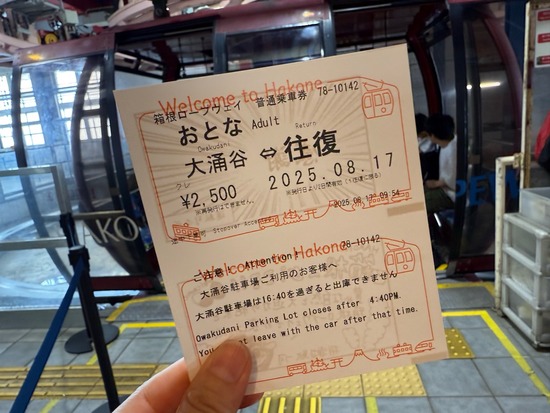 Welcome to Hakone
箱根ロープウェイ 普通乗車券 78-10142
おとな Adult
Owakudani Return
大涌谷 ⇔ 往復
クレ
¥2,500 2025.08.17
※再発行はできません。 ※発行日より2日間有効(1往復に限る)
Stopover 2025.08.17 09:54
Welcome to Hakone
ご注意 Attention! 78-10142
大涌谷駐車場ご利用のお客様へ
大涌谷駐車場は16:40を過ぎると出庫できません
Owakudani Parking Lot closes after 4:40PM.
You leave with the car after that time.
AKO